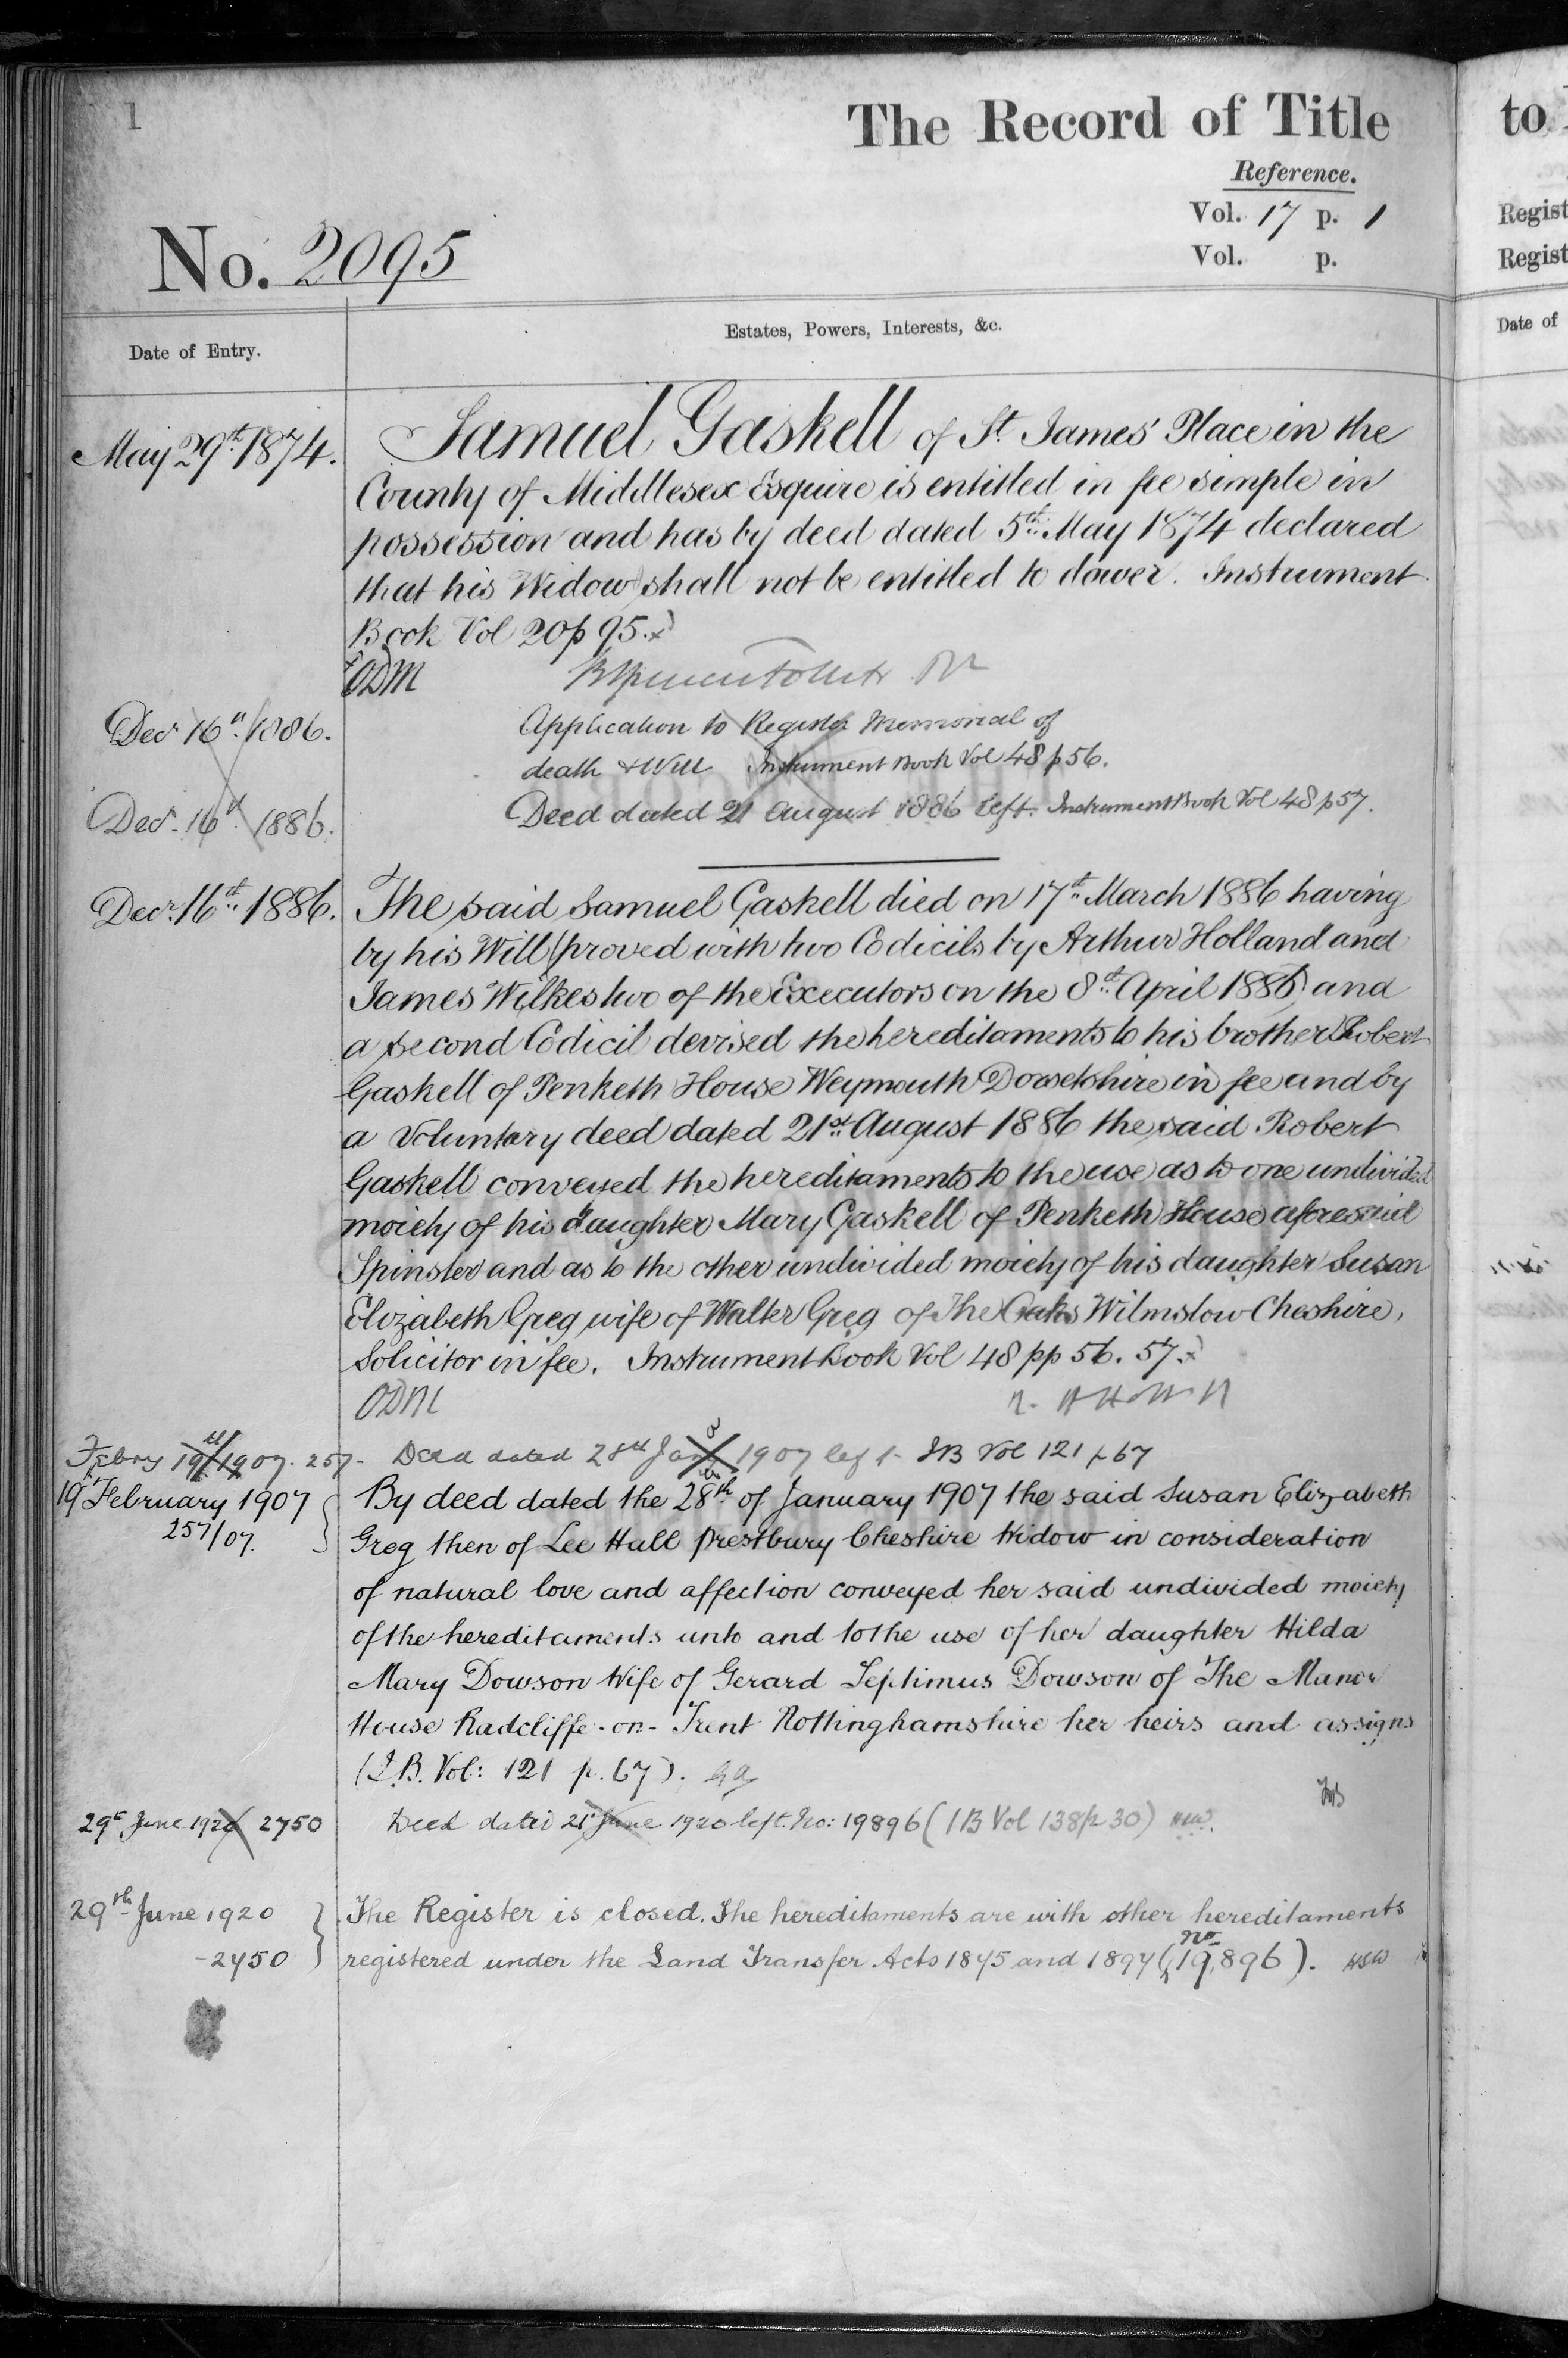 1
The Record of Title
Reference.
Vol. 17 p. 1
Vol. p.
No. 2095
Date of Entry.
Estates, Powers, Interests, &c.
May 29th 1874.
Samuel Gaskell of St. James' Place in the
County of Middlesex Esquire is entitled in fee simple in
possession and has by deed dated 5th May 1874 declared
that his Widow shall not be entitled to dower. Instrument
Book Vol 20 p 95.x
x ODM
Decr 16th 1886.
Application to Register Memorial of
death & Will Instrument Book Vol 48 p 56.
Decr. 16th 1886.
Deed dated 21 August 1886 left. Instrument Book Vol 48 p 57.
Decr. 16th 1886.
The said Samuel Gaskell died on 17th March 1886 having
by his Will (proved with two Codicils by Arthur Holland and
James Wilkes two of the Executors on the 8th April 1886) and
a second Codicil devised the hereditaments to his brother Robert
Gaskell of Penketh House Weymouth Dorsetshire in fee and by
a Voluntary deed dated 21st August 1886 the said Robert
Gaskell conveyed the hereditaments to the use as to one undivided
moiety of his daughter Mary Gaskell of Penketh House aforesaid
Spinster and as to the other undivided moiety of his daughter Susan
Elizabeth Greg wife of Walter Greg of The Oaks Wilmslow Cheshire,
Solicitor in fee. Instrument Book Vol 48 pp 56. 57.x
ODM
Febry 19th 1907. 257-
Deed dated 28th Jany 1907 left- IB Vol 121 p 67
19th February 1907
257/07.
By deed dated the 28th of January 1907 the said Susan Elizabeth
Greg then of Lee Hall Prestbury Cheshire Widow in consideration
of natural love and affection conveyed her said undivided moiety
of the hereditaments unto and to the use of her daughter Hilda
Mary Dowson Wife of Gerard Septimus Dowson of The Manor
House Radcliffe-on-Trent Nottinghamshire her heirs and assigns
(I.B. Vol: 121 p. 67).
29th June 1920 2750
Deed dated 21st June 1920 left. No: 19896 (IB Vol 138 p 30)
29th June 1920
-2750
The Register is closed. The hereditaments are with other hereditaments
registered under the Land Transfer Acts 1875 and 1897 (no 19,896).
to
Regist
Regist
Date of